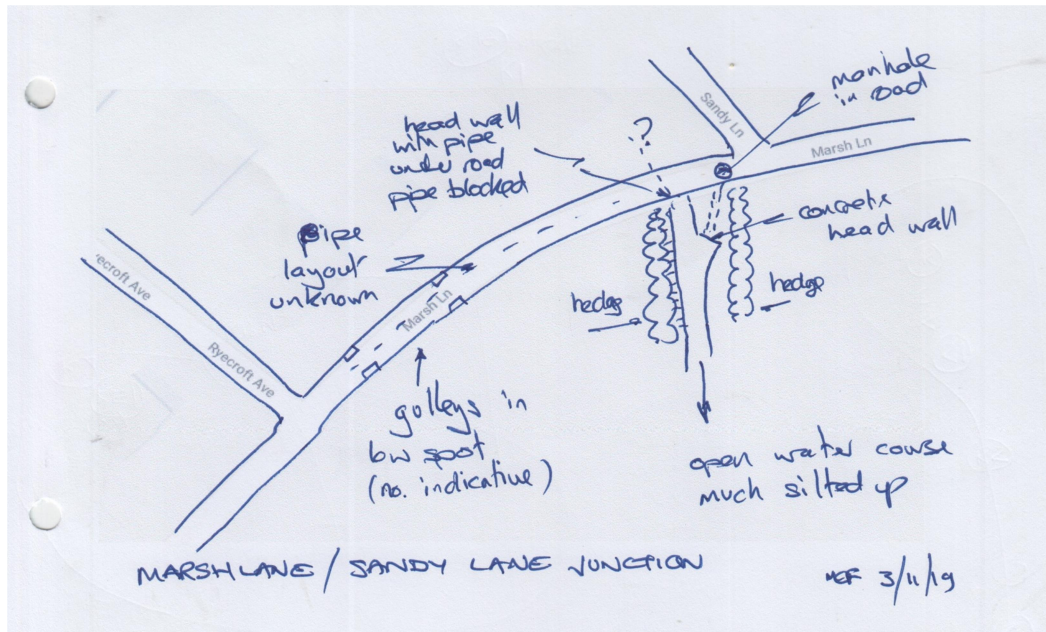 manhole
in road
Sandy Ln
Marsh Ln
?
head wall
with pipe
under road
pipe blocked
concrete
head wall
pipe
layout
unknown
hedge
hedge
ecroft Ave
Ryecroft Ave
Marsh Ln
gulleys in
low spot
(no. indicative)
open water course
much silted up
MARSH LANE / SANDY LANE JUNCTION
3/11/19